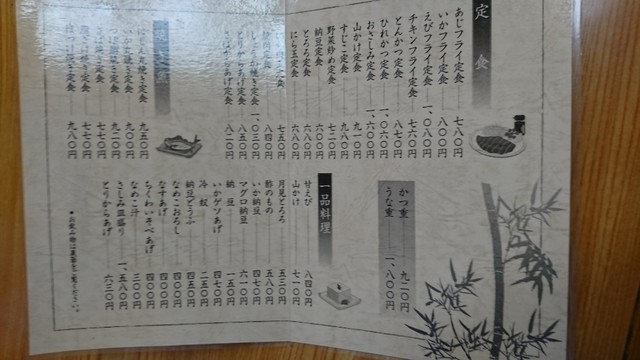 定食
あじフライ定食 七八〇円
いかフライ定食 八〇〇円
えびフライ定食 一、〇八〇円
チキンフライ定食 七六〇円
とんかつ定食 八七〇円
ひれかつ定食 一、〇六〇円
おさしみ定食 一、六〇〇円
山かけ定食 九一〇円
すじこ定食 九八〇円
野菜炒め定食 七八〇円
納豆定食 六〇〇円
とろろ定食 八〇〇円
にら玉定食 六八〇円
定食 七五〇円
定食 八四〇円
しょうが焼き定食 一、〇三〇円
とりからあげ定食 八五〇円
あげ定食 八二〇円
定食
焼き定食 九五〇円
焼き定食 九〇〇円
定食 九二〇円
定食 七七〇円
定食 七七〇円
定食 九八〇円
かつ重 九二〇円
うな重 一、八〇〇円
一品料理
甘えび 八四〇円
山かけ 七一〇円
月見とろろ 五三〇円
酢のもの 五八〇円
いか納豆 四七〇円
マグロ納豆 六一〇円
納豆 一五〇円
いかゲソあげ 四七〇円
冷奴 二五〇円
納豆どうふ 四五〇円
なめこおろし 四〇〇円
なすあげ 四〇〇円
ちくわいそべあげ 四〇〇円
なめこ汁 三〇〇円
さしみ皿盛り 一、五八〇円
とりからあげ 六三〇円
●お飲み物は裏面をご覧ください。